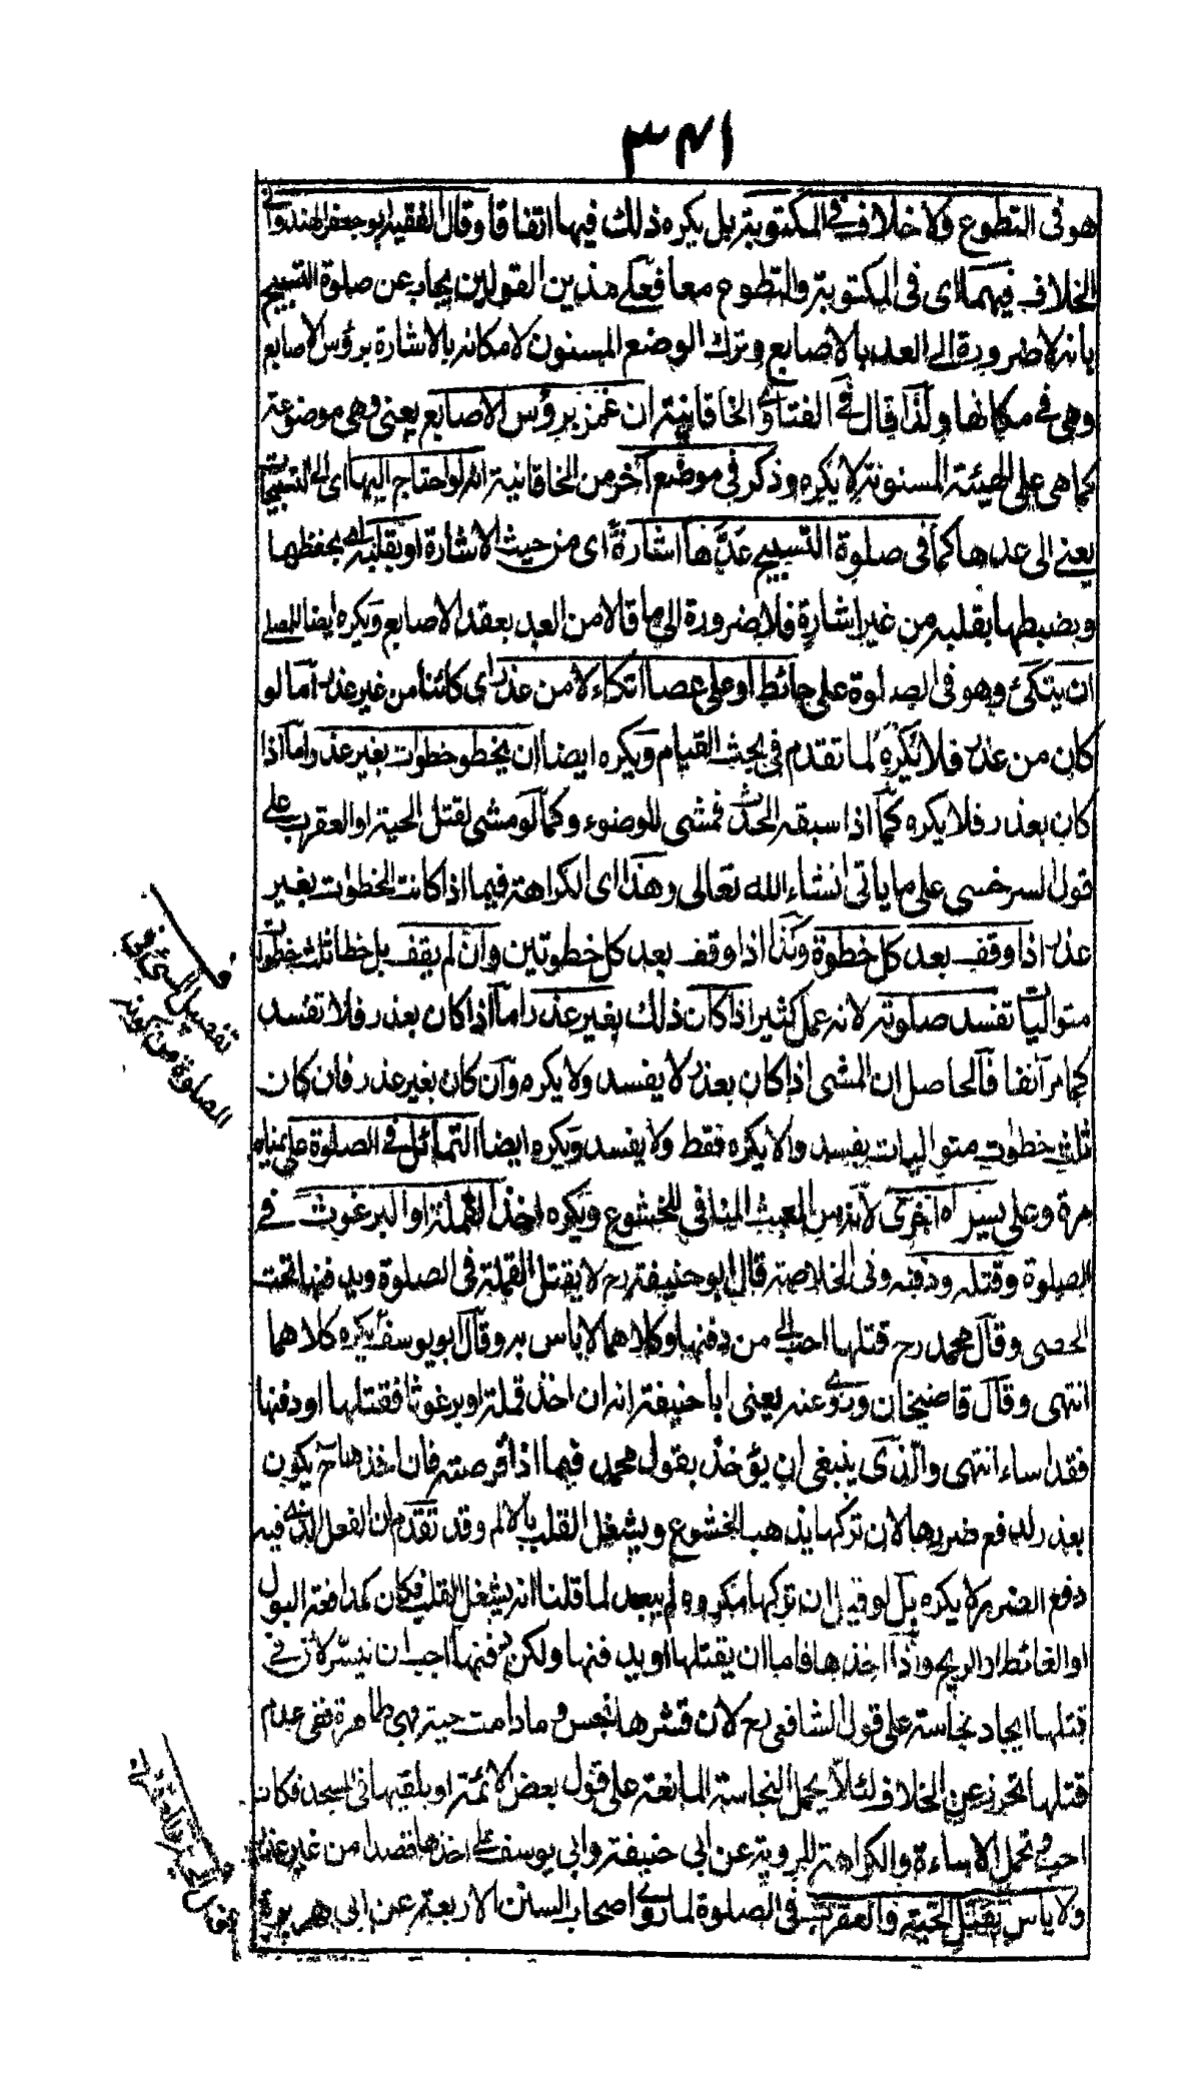 ٣٤١
هو فى التطوع ولا خلاف فى المكتوبة بل يكره ذلك فيها اتفاقا وقال الفقيه ابو جعفر الهندوانى
الخلاف فيهما اى فى المكتوبة والتطوع معا فعلى هذين القولين يجاب عن صلوة التسبيح
بانه لا ضرورة الى العد بالاصابع وترك الوضع المسنون لامكانه بالاشارة برؤس الاصابع
وهى فى مكانها ولذا قال فى الفتاوى الخاقانية ان غمز برؤس الاصابع يعنى وهى موضوعة
كما هى على الهيئة المسنونة لا يكره وذكر فى موضع آخر من الخاقانية انه لو احتاج اليها اى الى التسبيحات
يعنى الى عدها كما فى صلوة التسبيح عدها اشارة اى من حيث الاشارة او بقلبه اى بحفظها
ويضبطها بقلبه من غير اشارة فلا ضرورة الى ما قالا من العد بعقد الاصابع ويكره ايضا للمصلى
ان يتكئ وهو فى الصلوة على حائط او على عصا اتكاء لا من عذر اى كائنا من غير عذر اما لو
كان من عذر فلا يكره لما تقدم فى بحث القيام ويكره ايضا ان يخطو خطوات بغير عذر واما اذا
كان بعذر فلا يكره كما اذا سبقه الحدث فمشى للوضوء وكما لو مشى لقتل الحية او العقرب على
قول السرخسى على ما ياتى انشاء الله تعالى وهذا اى الكراهة فيما اذا كانت الخطوات بغير
عذر اذا وقف بعد كل خطوة وكذا اذا وقف بعد كل خطوتين وان لم يقف بل خطا ثلث خطوات
متواليا تفسد صلوته لانه عمل كثير اذا كان ذلك بغير عذر اما اذا كان بعذر فلا تفسد
كما مر آنفا فالحاصل ان المشى اذا كان بعذر لا يفسد ولا يكره وان كان بغير عذر فان كان
ثلث خطوات متواليات يفسد والا يكره فقط ولا يفسد ويكره ايضا التمائل فى الصلوة على يمناه
مرة وعلى يسراه اخرى لانه من العبث المنافى للخشوع ويكره اخذ القملة او البرغوث فى
الصلوة وقتله ودفنه وفى الخلاصة قال ابو حنيفة رح لا يقتل القملة فى الصلوة ويدفنها تحت
الحصى وقال محمد رح قتلها احب الى من دفنها وكلاهما لا باس به وقال ابو يوسف يكره كلاهما
انتهى وقال قاضيخان وروى عنه يعنى ابا حنيفة انه ان اخذ قملة او برغوثا فقتلها او دفنها
فقد اساء انتهى والذى ينبغى ان يؤخذ بقول محمد فيما اذا قرصته فان اخذها ح يكون
بعذر لدفع ضررها لان تركها يذهب الخشوع ويشغل القلب بالالم وقد تقدم ان الفعل الذى فيه
دفع الضرر لا يكره بل لو قيل ان تركها مكروه لم يبعد لما قلنا انه يشغل القلب فكان كمدافعة البول
او الغائط او الريح واذا اخذها فاما ان يقتلها او يدفنها ولكن دفنها احب ان تيسر لان فى
قتلها ايجاد نجاسة على قول الشافعى رح لان قشرها نجس وما دامت حية فهى طاهرة ففى عدم
قتلها تحرز عن الخلاف لئلا يحمل النجاسة المانعة على قول بعض الائمة او يلقيها فى المسجد فكان
احب وتحمل الاساءة والكراهة المروية عن ابى حنيفة وابى يوسف على اخذها قصدا من غير عذر
ولا باس بقتل الحية والعقرب فى الصلوة لما روى اصحاب السنن الاربعة عن ابى هريرة
تفصيل المشى فى
الصلوة من